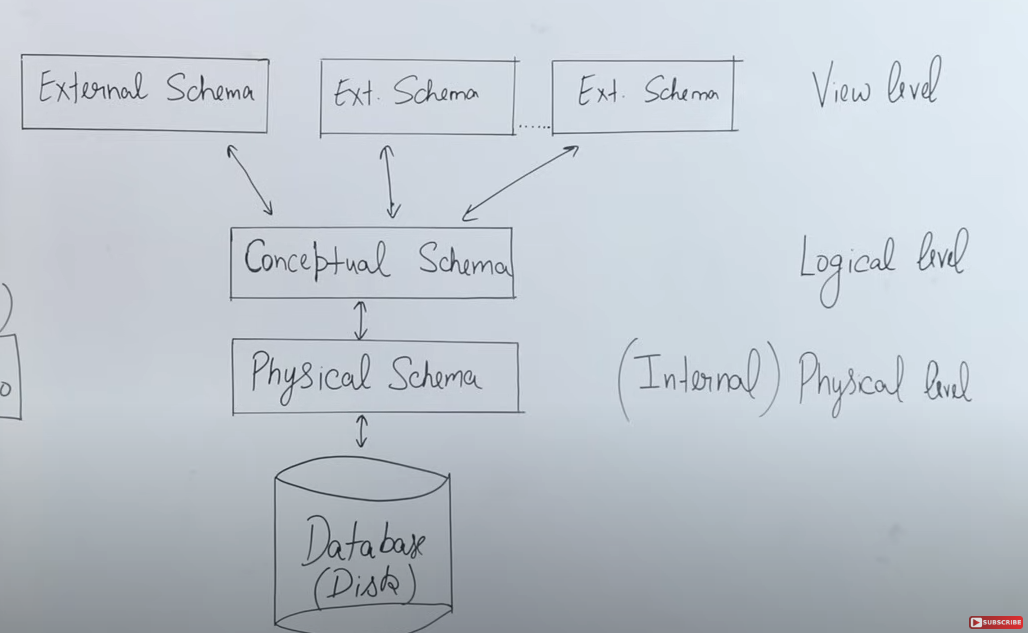 External Schema
Ext. Schema
Ext. Schema
View level
Conceptual Schema
Logical level
Physical Schema
(Internal) Physical level
Database
(Disk)
SUBSCRIBE